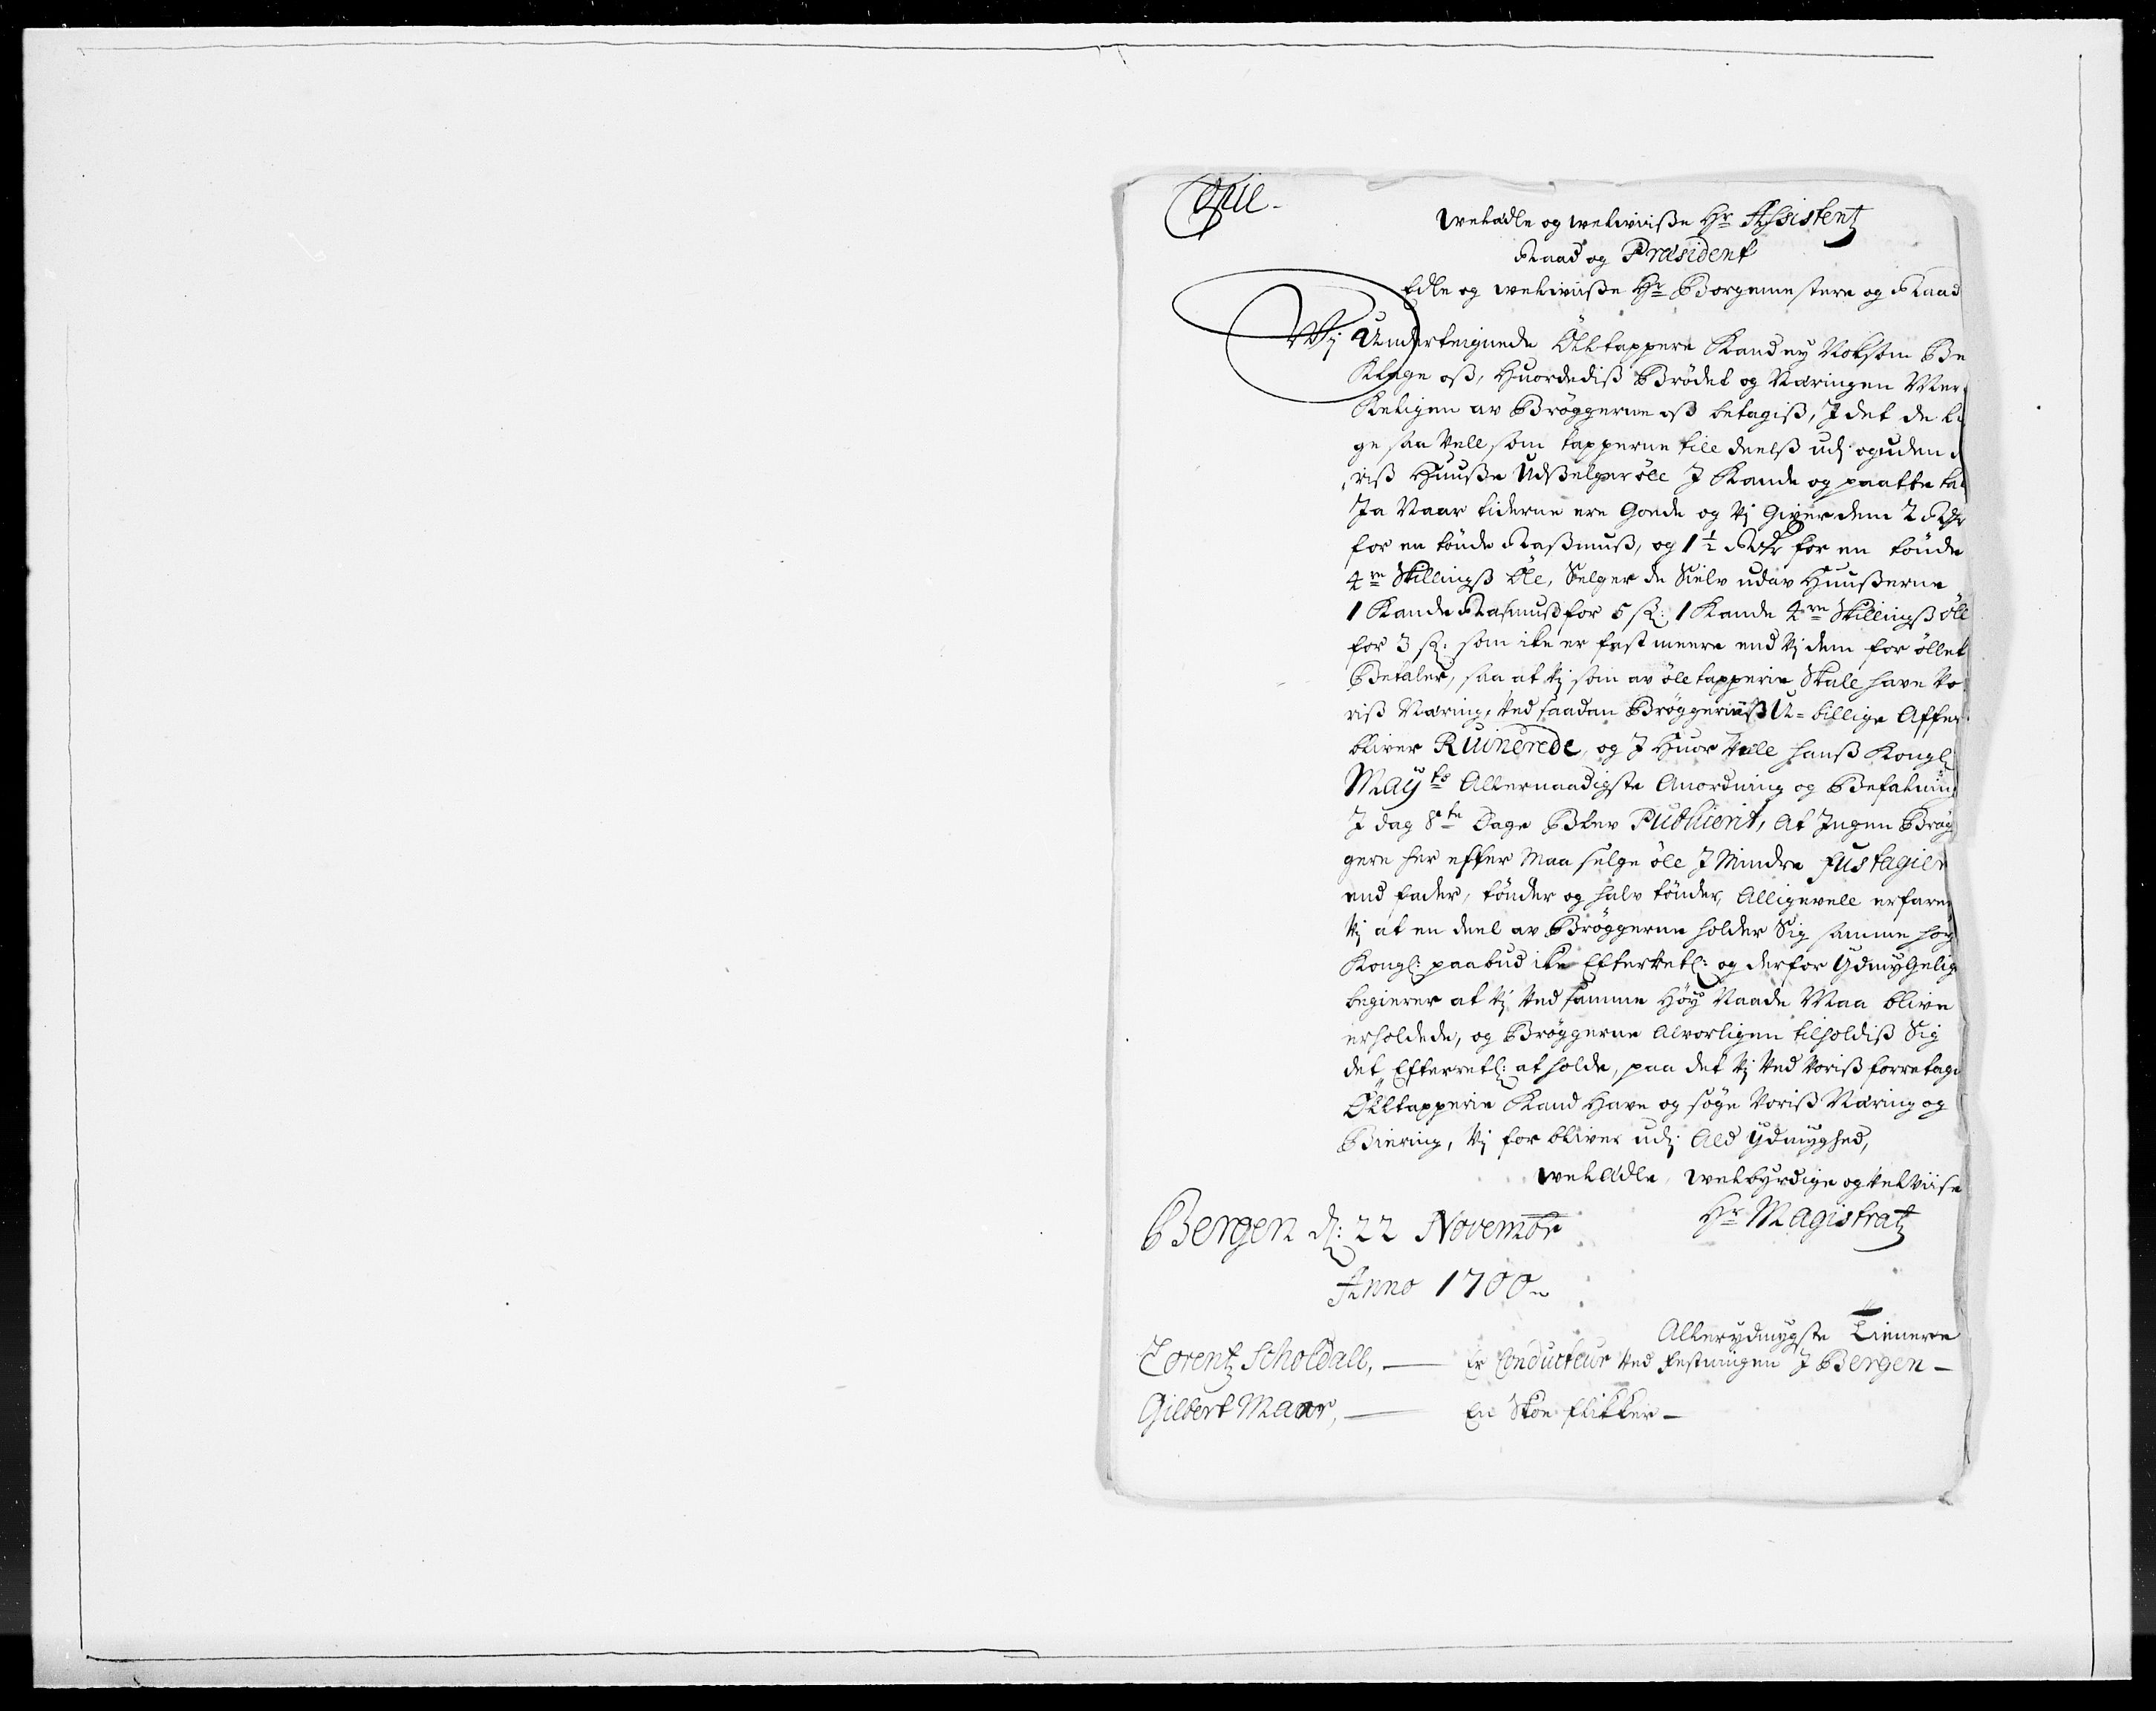 Copie
Welædle og welwiiße Hr Assistentz
Raad og Præsident
Edle og welwiiße Hr Borgemestere og Raad
Wj Underteignede Ölltappere Kand ej Noksom Be
Klage oß, Huordediß Brödet og Næringen Mer¬
Keligen av Bröggerne oß betagiß, J det de li
ge saa Vell som tapperne till deelß udj og uden d
riß Huuße Udßelger öll J Kande og paatte tal
Ja Naar tiderne ere Goede og Vj Giver dem 2 Rdr
for en tönde Raßmuß, og 1½ Rdr for en tönde
4re Skillingß Öll, Selger de Sielv udav Huußerne
1 Kande Rasmuß for 5 sk: 1 Kande 4re Skillingß öll
for 3 sk: som ike er fast meere end Vj dem for öllet
Betaler, saa at Vj som av ölltapperie Skall have Vo
riß Næring, Ved saadan Bröggerneß U-billige Affer
bliver Ruinerede, og J Huor Vell hanß Kongl:
Mayts Allernaadigste Anordning og Befalning
J dag 8te Dage Blev Publicerit, At Jngen Brög
gere her effter Maa selge öll J Mindre fustagier
end fader, tönder og halv tönder, Alligevell erfarer
Vj at en deel av Bröggerne holder Sig samme höy
Kongl: paabud ike Efterretl: og derfor Ydmygelig
begierer at Vj Ved samme Höy Naade Maa blive
erholdede, og Bröggerne Alvorligen tilholdiß Sig
det Efterretl: at holde, paa det Vj Ved Voriß forretagne
Ölltapperie Kand Have og söge Voriß Næring og
Biering, Vj forbliver udj Ald Ydmyghed,
WelEdle, Welbyrdige og Velviise
Bergen d: 22 Novembr
Hr Magistratz
Anno 1700
Allerydmygste Tienere
Lorentz Scholdall, — Er Conducteur Ved Festningen J Bergen —
Gilbert Marr, — En Skoe flikker —